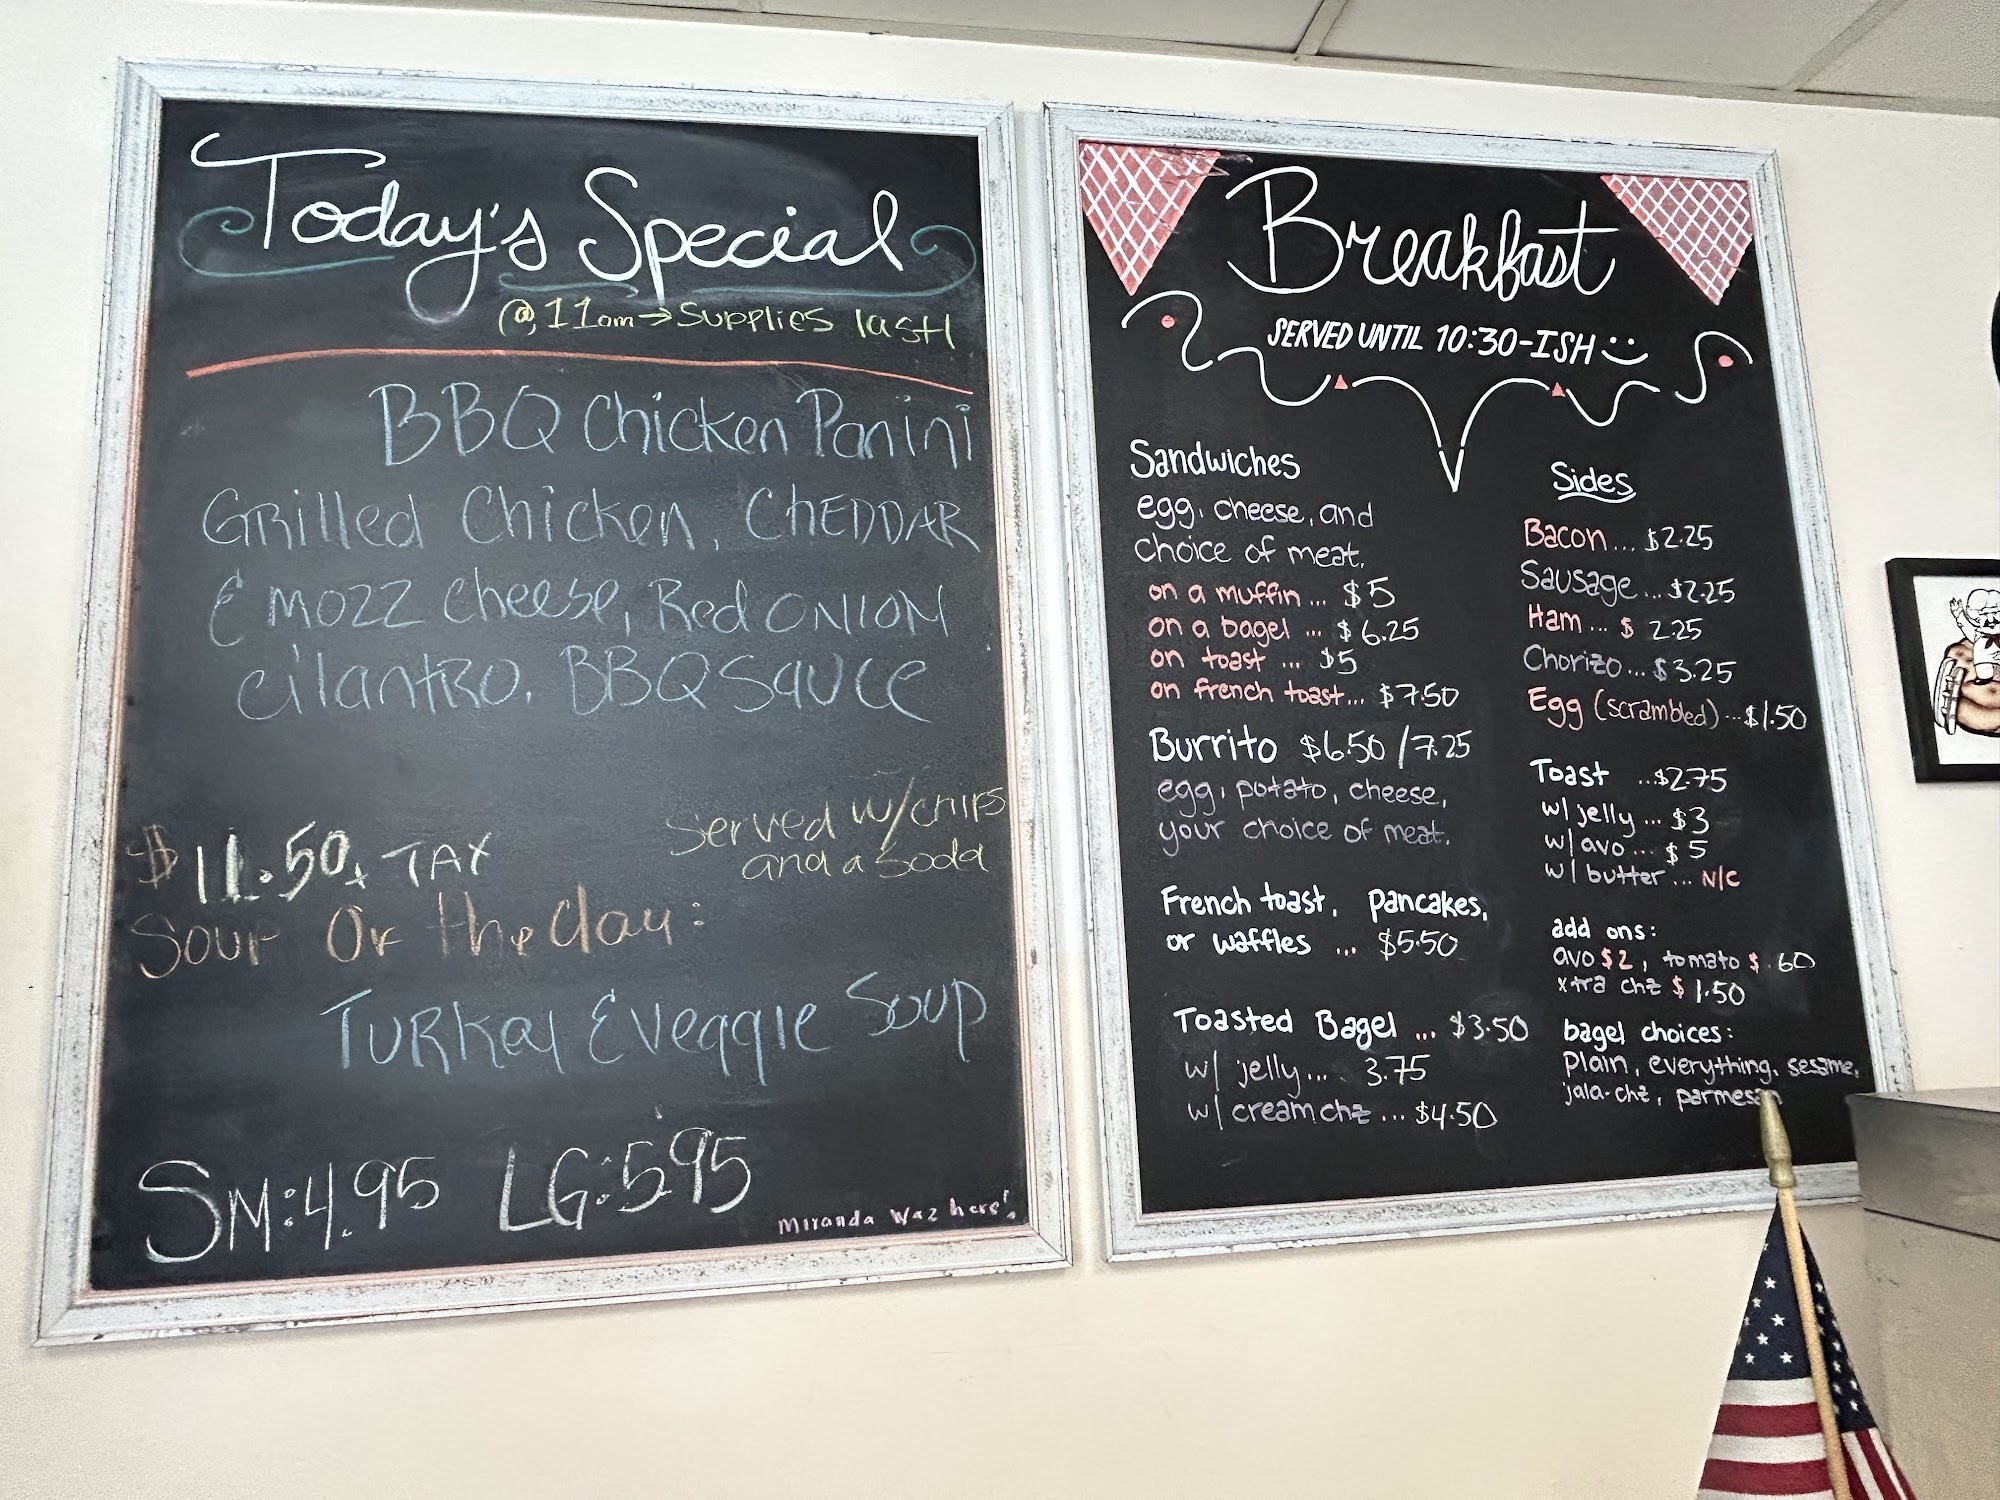 Today's Special
@ 11am → Supplies last!
BBQ Chicken Panini
Grilled Chicken, CHEDDAR
& mozz cheese, Red ONION
cilantro, BBQ SAUCE
served w/chips
and a soda
$11.50 + TAX
Soup Of the day:
Turkey & veggie Soup
Sm: 4.95 LG: 5.95
Miranda waz here!
Breakfast
SERVED UNTIL 10:30-ISH
Sandwiches
egg, cheese, and
choice of meat.
on a muffin... $5
on a bagel ... $6.25
on toast ... $5
on french toast... $7.50
Burrito $6.50/7.25
egg, potato, cheese,
your choice of meat.
French toast, pancakes,
or waffles ... $5.50
Toasted Bagel ... $3.50
w/ jelly... 3.75
w/ cream chz ... $4.50
Sides
Bacon... $2.25
Sausage ... $2.25
Ham ... $ 2.25
Chorizo ... $3.25
Egg (scrambled)...$1.50
Toast ...$2.75
w/ jelly ... $3
w/ avo ... $5
w/ butter ... N/C
add ons:
avo $2, tomato $ .60
xtra chz $1.50
bagel choices:
plain, everything, sesame,
jala-chz, parmesan